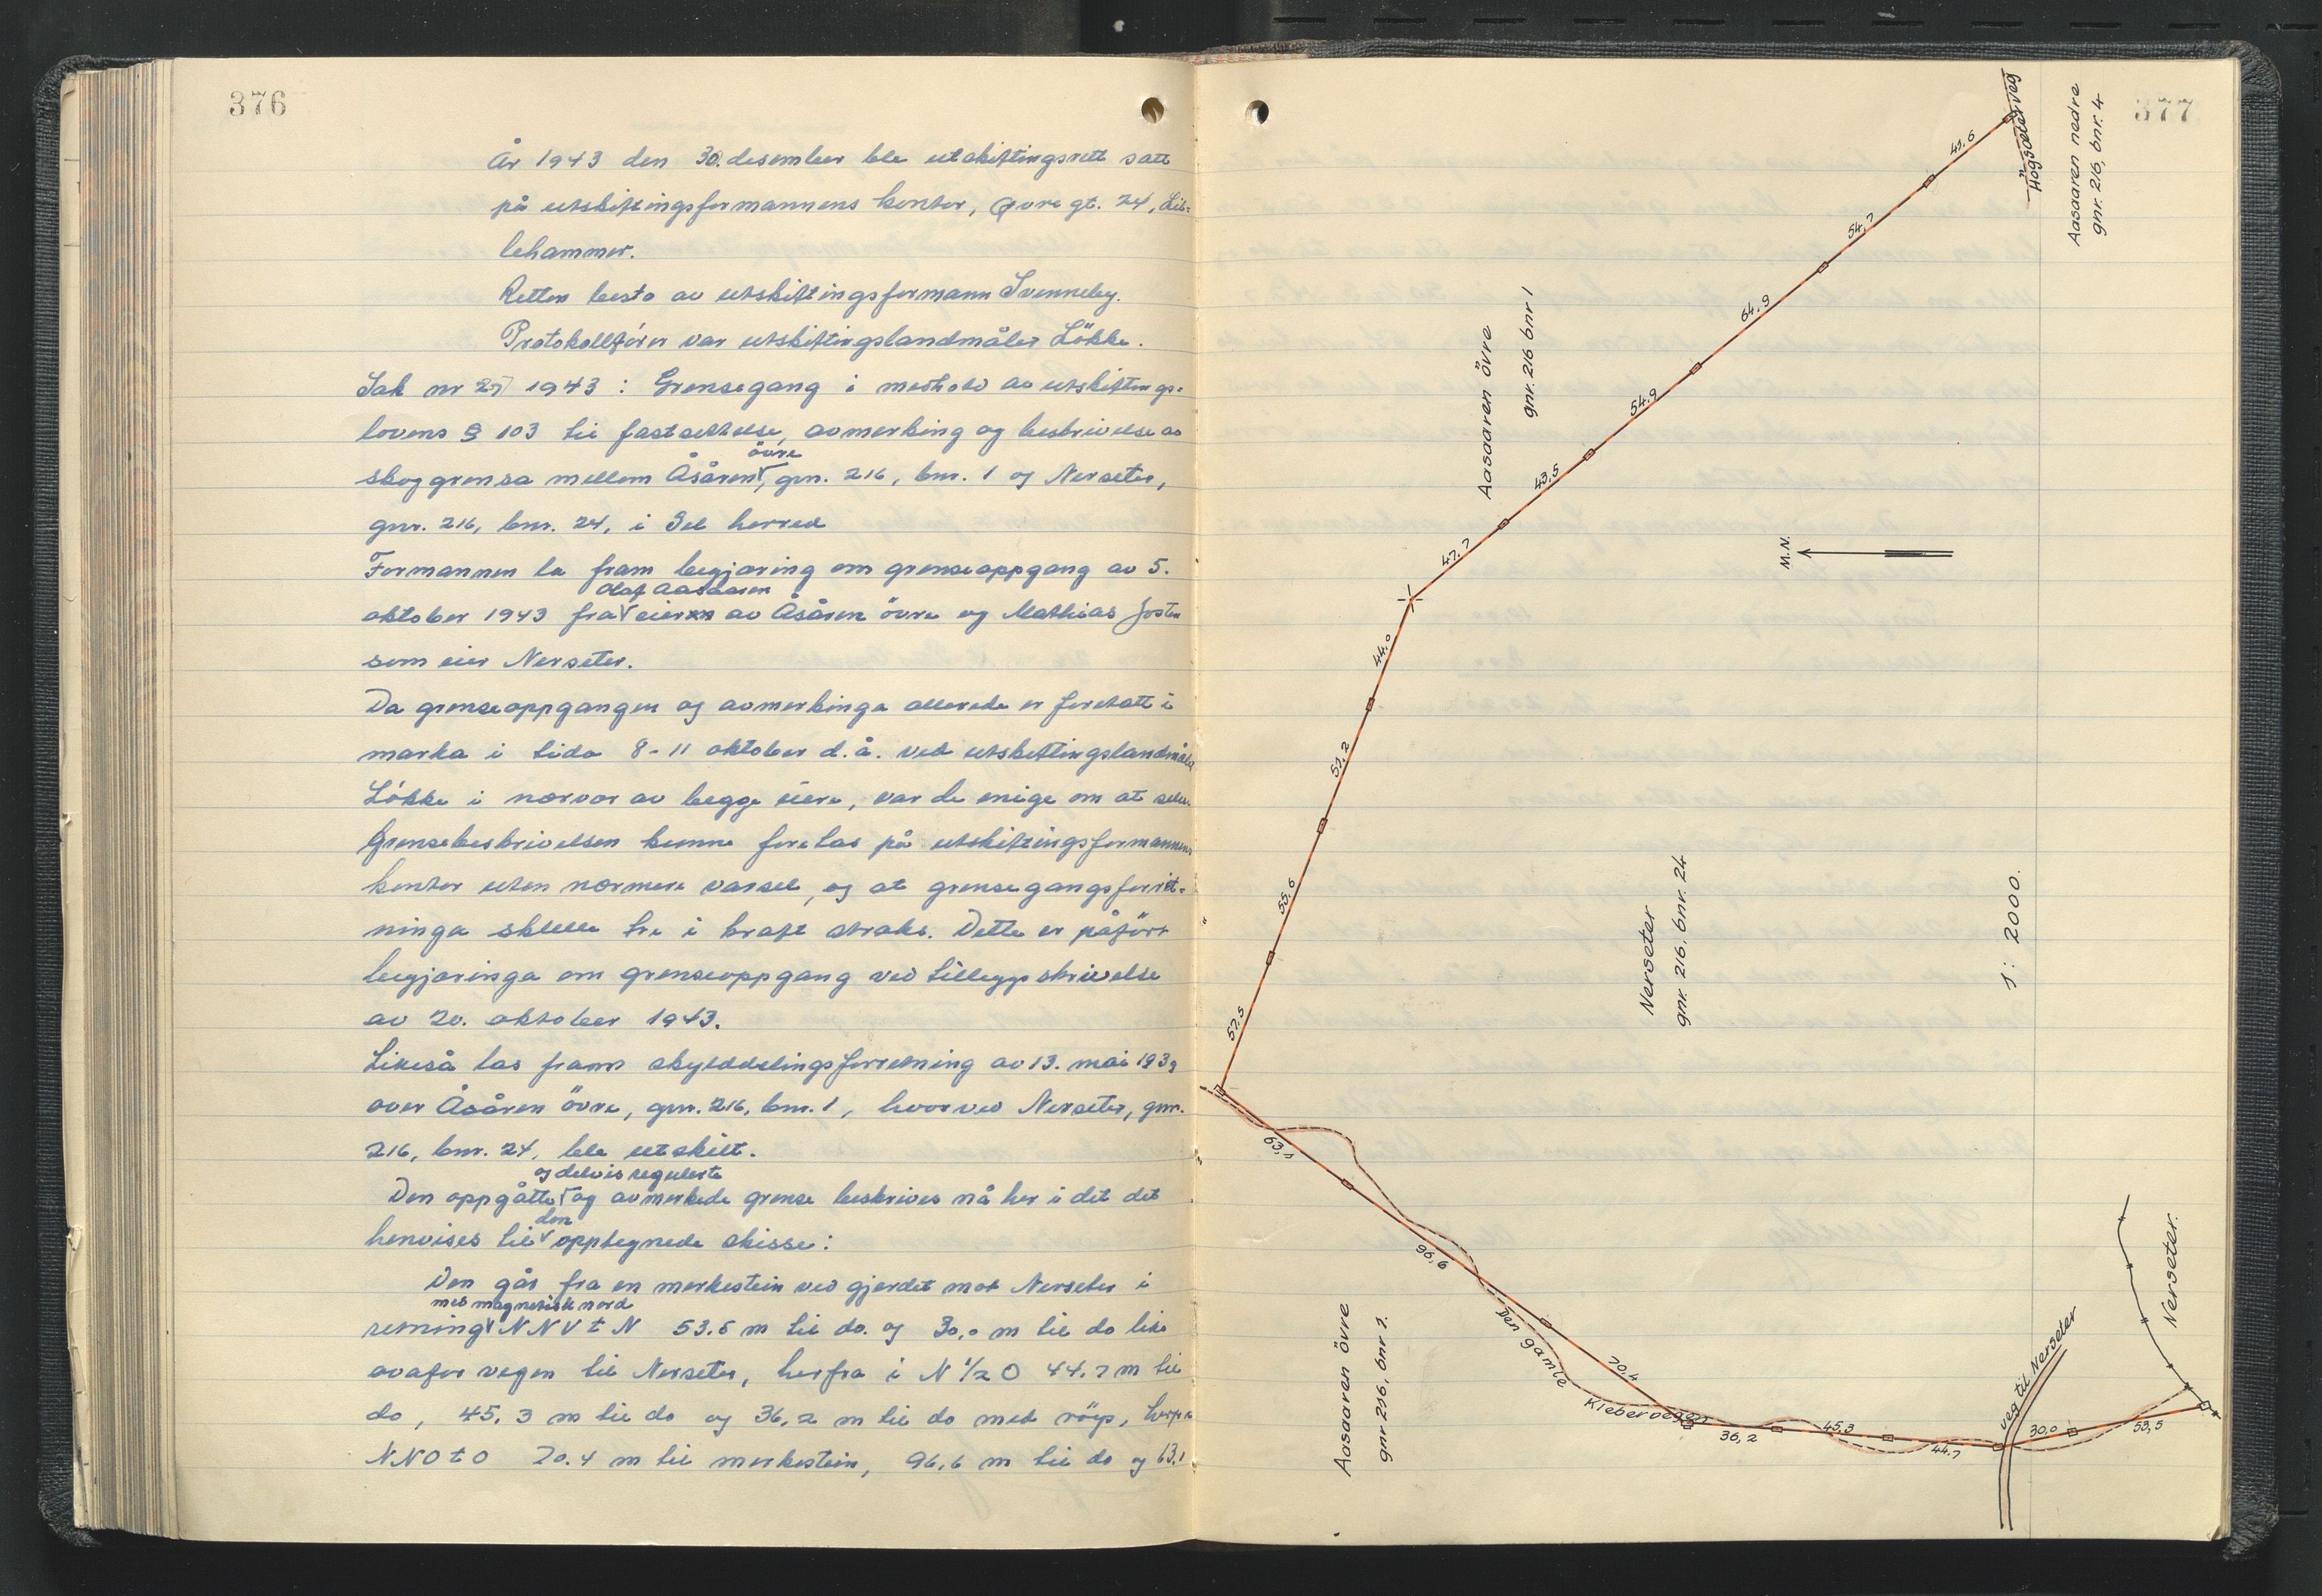 376
År 1943 den 30. desember ble utskiftingsrett satt
på utskiftingsformannens kontor, Øvre gt. 24, Lil-
lehammer.
Retten besto av utskiftingsformann Svenneby.
Protokollfører var utskiftingslandmåler Lökke.
Sak nr 27 1943 : Grensegang i medhold av utskiftings-
lovens § 103 til fastsettelse, avmerking og beskrivelse av
øvre
skoggrensa mellom Åsåren, gnr. 216, bnr. 1 og Nerseter,
gnr. 216, bnr. 24, i Sel herred
Formannen la fram begjæring om grenseoppgang av 5.
Olaf Aasaaren
oktober 1943 fra eieren av Åsåren övre og Mathias Josten
som eier Nerseter.
Da grenseoppgangen og avmerkinga allerede er foretatt i
marka i tida 8-11 oktober d.å. ved utskiftingslandmåler
Lökke i nærvær av begge eiere, var de enige om at selve
Grensebeskrivelsen kunne foretas på utskiftingsformannens
kontor uten nærmere varsel, og at grensegangsforret-
ninga skulle tre i kraft straks. Dette er påfört
begjæringa om grenseoppgang ved tilleggsskrivelse
av 20. oktober 1943.
Likeså las fram skylddelingsforretning av 13. mai 1939
over Åsåren övre, gnr. 216, bnr. 1, hvorved Nerseter, gnr.
216, bnr. 24, ble utskilt.
og delvis regulerte
Den oppgåtte og avmerkede grense beskrives nå her i det det
den
henvises til opptegnede skisse:
Den går fra en merkestein ved gjerdet mot Nerseter i
med magnetisk nord
retning NNV t N 53.5 m til do. og 30,0 m til do like
ovafor vegen til Nerseter, herfra i N ½ O 44.7 m til
do, 45,3 m til do og 36,2 m til do med röys, herfra
NNO t O 70.4 m til merkestein, 96,6 m til do og 63,1
377
Aasaaren nedre
gnr. 216, bnr. 4
Högsæterveg
43,6
54,7
64,9
54,9
43,5
47,7
44,0
57,2
55,6
57,5
63,1
96,6
70,4
36,2
45,3
44,7
30,0
53,5
Aasaaren övre
gnr. 216 bnr 1
M.N.
Nerseter
gnr. 216, bnr. 24
1: 2000.
Aasaaren övre
gnr 216, bnr 1.
Den gamle
Klebervegen
veg til Nerseter
Nerseter.